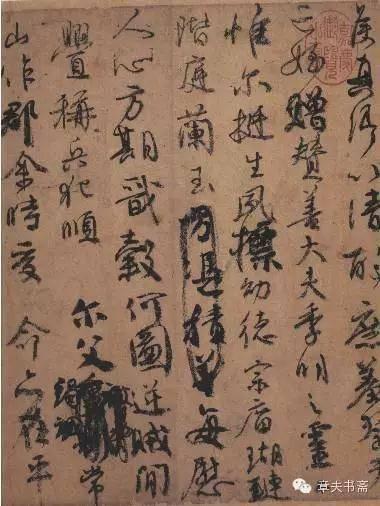 侯真卿以清酌庶羞祭于
亡姪贈贊善大夫季明之靈
惟尔挺生夙標幼德宗廟瑚璉
階庭蘭玉方憑積善每慰
人心方期戩穀何圖逆賊閒
釁稱兵犯順尔父常
山作郡余時受命亦在平
章夫书斋